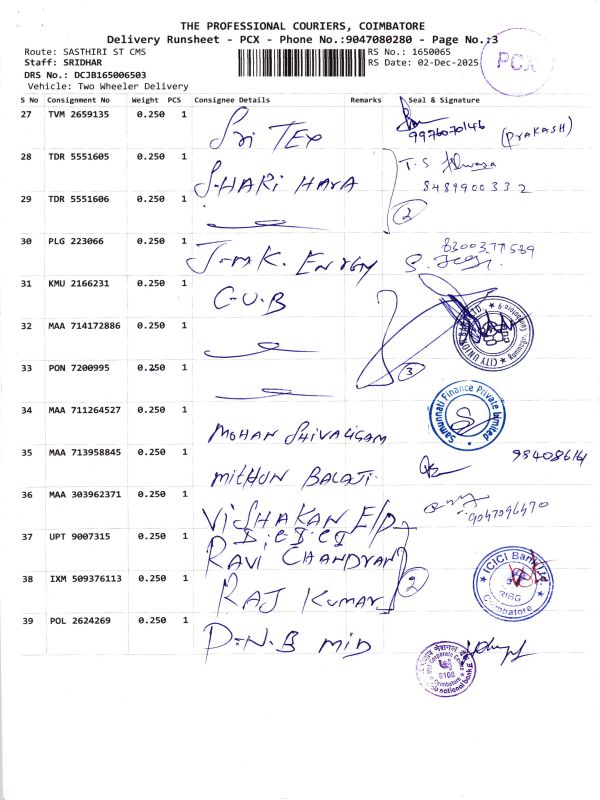 THE PROFESSIONAL COURIERS, COIMBATORE
Delivery Runsheet - PCX - Phone No.:9047080280 - Page No.:3
Route: SASTHIRI ST CMS
RS No.: 1650065
Staff: SRIDHAR
RS Date: 02-Dec-2025
PCX
DRS No.: DCJB165006503
Vehicle: Two Wheeler Delivery
S No Consignment No Weight PCS Consignee Details Remarks Seal & Signature
27 TVM 2659135 0.250 1 Sri TEX 9976070146 (PRAKASH)
28 TDR 5551605 0.250 1 S-HARi HARA T.S
8489900332
29 TDR 5551606 0.250 1 2
30 PLG 223066 0.250 1 J-m.K. ENrGy 8300377589
31 KMU 2166231 0.250 1 C-U.B
32 MAA 714172886 0.250 1 CITY UNION BANK LTD.
33 PON 7200995 0.250 1 3
34 MAA 711264527 0.250 1 MOHAN SHIVALIGAM Samunnati Finance Private Limited
35 MAA 713958845 0.250 1 MITHUN BALAJI 98408614
36 MAA 303962371 0.250 1 VISHAKAN E/P 9047096470
37 UPT 9007315 0.250 1 RAVI CHANDRAN ICICI Bank Ltd.
RIBG
Coimbatore
38 IXM 509376113 0.250 1 RAJ KUMAR 2
39 POL 2624269 0.250 1 P=N.B MID